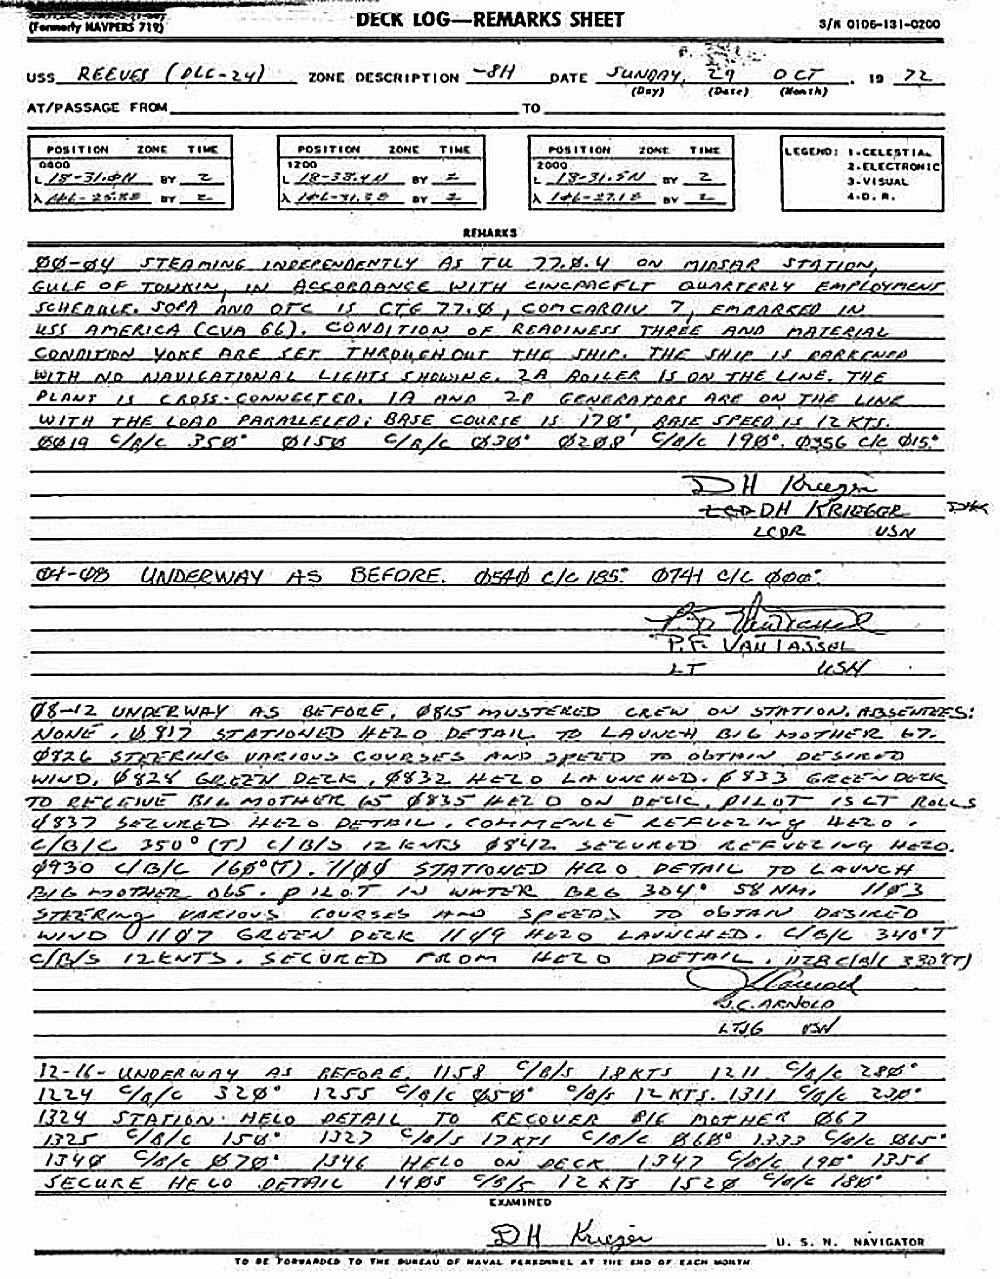 (Formerly NAVPERS 719)
DECK LOG—REMARKS SHEET
S/N 0106-131-0200
USS REEVES (DLG-24) ZONE DESCRIPTION -8H DATE SUNDAY, 29 OCT. 19 72
(Day) (Date) (Month)
AT/PASSAGE FROM TO
POSITION ZONE TIME
0800
L 18-31.0N BY 2
λ BY 2
POSITION ZONE TIME
1200
L 18-33.4N BY 2
λ BY 2
POSITION ZONE TIME
2000
L 18-31.5N BY 2
λ BY 2
LEGEND: 1-CELESTIAL
2-ELECTRONIC
3-VISUAL
4-D. R.
REMARKS
00-04 STEAMING INDEPENDENTLY AS TU 77.0.4 ON MIDSAR STATION,
GULF OF TONKIN, IN ACCORDANCE WITH CINCPACFLT QUARTERLY EMPLOYMENT
SCHEDULE. SOPA AND OTC IS CTG 77.0, COMCARDIV 7, EMBARKED IN
USS AMERICA (CVA 66). CONDITION OF READINESS THREE AND MATERIAL
CONDITION YOKE ARE SET THROUGHOUT THE SHIP. THE SHIP IS DARKENED
WITH NO NAVIGATIONAL LIGHTS SHOWING. 2A BOILER IS ON THE LINE. THE
PLANT IS CROSS-CONNECTED. 1A AND 2B GENERATORS ARE ON THE LINE
WITH THE LOAD PARALLELED; BASE COURSE IS 170° BASE SPEED IS 12 KTS.
0019 C/B/C 350° 0150 C/B/C 030° 0208 C/B/C 190°. 0356 C/C 015°
DH Krieger
LCD DH KRIEGER DHK
LCDR USN
04-08 UNDERWAY AS BEFORE. 0540 C/C 185° 0741 C/C 000°
P.F. VAN TASSEL
LT USN
08-12 UNDERWAY AS BEFORE. 0815 MUSTERED CREW ON STATION. ABSENTEES:
NONE. 0817 STATIONED HELO DETAIL TO LAUNCH BIG MOTHER 67.
0826 STEERING VARIOUS COURSES AND SPEED TO OBTAIN DESIRED
WIND. 0828 GREEN DECK. 0832 HELO LAUNCHED. 0833 GREEN DECK
TO RECEIVE BIG MOTHER 65 0835 HELO ON DECK. PILOT IS LT ROLLS
0837 SECURED HELO DETAIL. COMMENCE REFUELING HELO.
C/B/C 350° (T) C/B/S 12 KNTS 0842 SECURED REFUELING HELO.
0930 C/B/C 160° (T). 1100 STATIONED HELO DETAIL TO LAUNCH
BIG MOTHER 065. PILOT IN WATER BRG 304° 58 NM. 1103
STEERING VARIOUS COURSES AND SPEEDS TO OBTAIN DESIRED
WIND 1107 GREEN DECK 1109 HELO LAUNCHED. C/B/C 340°T
C/B/S 12 KNTS. SECURED FROM HELO DETAIL. C/B/C 330°(T)
J.C. ARNOLD
LTJG USN
12-16- UNDERWAY AS BEFORE. 1158 C/B/S 18 KTS 1211 C/B/C 280°
1224 C/B/C 320° 1255 C/B/C 050° C/B/S 12 KTS. 1311 C/B/C 230°
1324 STATION HELO DETAIL TO RECOVER BIG MOTHER 067
1325 C/B/C 150° 1327 C/B/S 17 KTS C/B/C 060° 1333 C/B/C 065°
1340 C/B/C 070° 1346 HELO ON DECK 1347 C/B/C 190° 1356
SECURE HELO DETAIL 1405 C/B/S 12 KTS 1520 C/B/C 180°
EXAMINED
DH Krieger U. S. N. NAVIGATOR
TO BE FORWARDED TO THE BUREAU OF NAVAL PERSONNEL AT THE END OF EACH MONTH